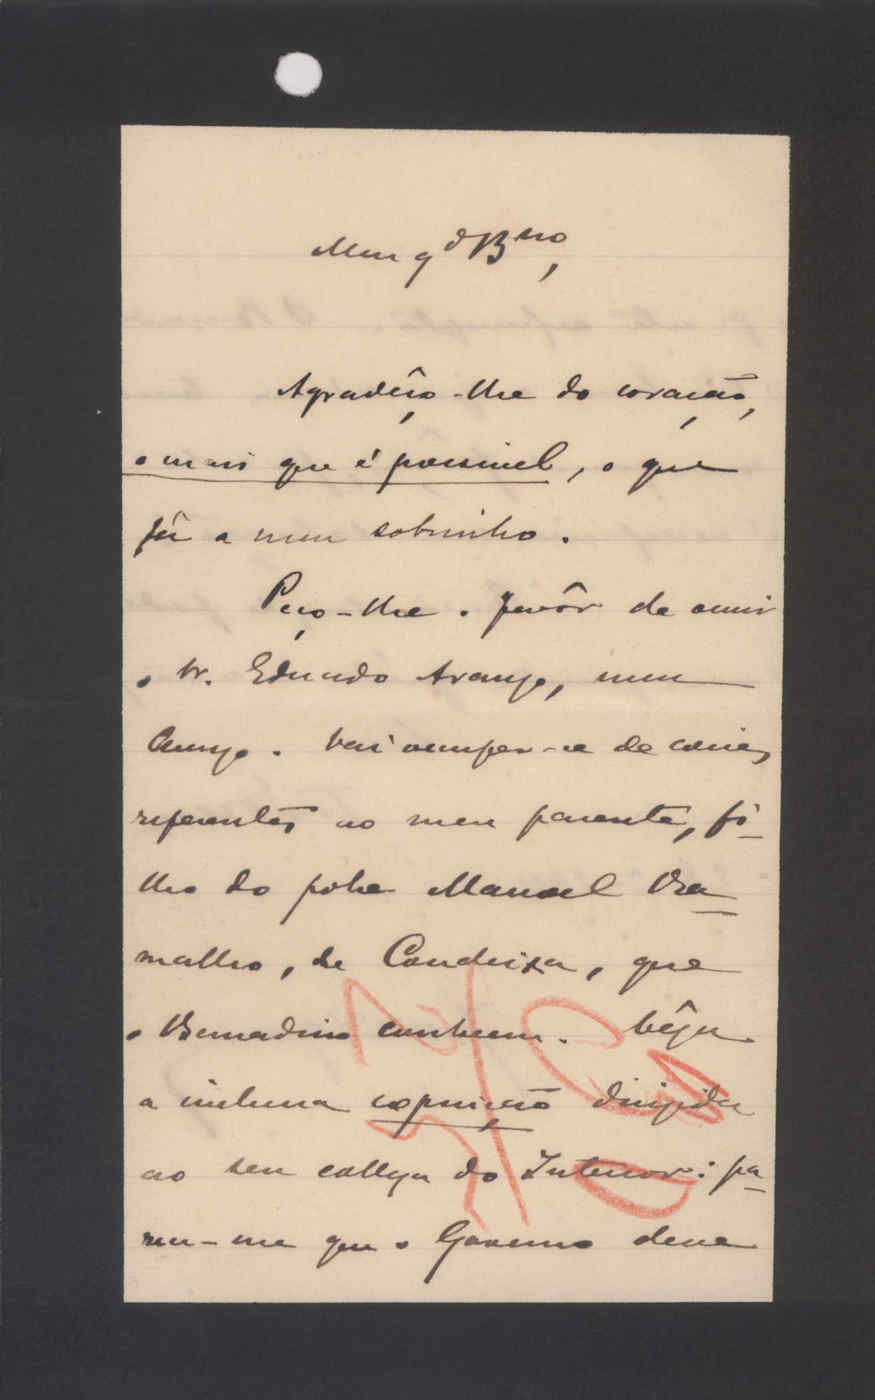 Meu q.do B.no,
Agradêço-lhe do coração,
o mais que é possivel, o que
fêz a meu sobrinho.
Peço-lhe o favôr de ouvir
o Sr. Eduardo Araujo, meu
Amigo. Vai occupar-se de coisas
referentes ao meu parente, fi-
lho do pobre Manoel Ra-
malho, de Condeixa, que
o Bernardino conheceu. Vêja
a inclusa exposição dirigida
ao seu collega do Interior: pa-
rece-me que o Governo deve